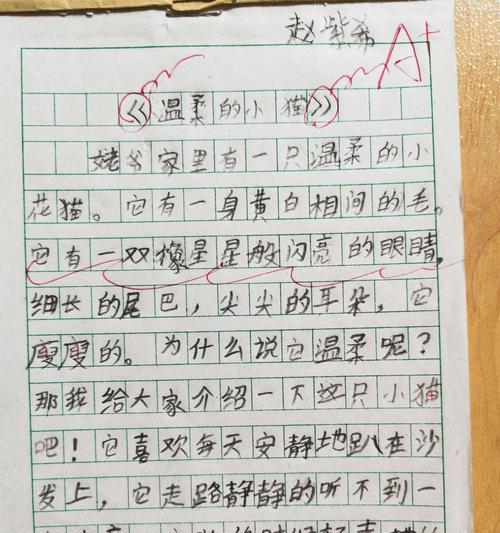 赵紫希
A+
《温柔的小猫》
姥爷家里有一只温柔的小
花猫。它有一身黄白相间的毛。
它有一双像星星般闪亮的眼睛，
细长的尾巴，尖尖的耳朵，它
瘦瘦的。为什么说它温柔呢？
那我给大家介绍一下这只小猫
吧！它喜欢每天安静地趴在沙
发上，它走路静静的听不到一